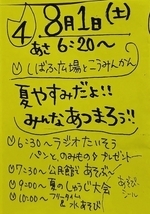 ④ 8月1日(土)
あさ6:20〜
◎しばふ広場とこうみんかん
夏やすみだよ!!
みんなあつまろう!!
◎6:30〜ラジオたいそう
パンと、のみものプレゼント
◎7:30〜公民館であそぶ〜
◎9:00〜夏のしゅうじ大会
◎10:00〜フリータイム
&水あそび